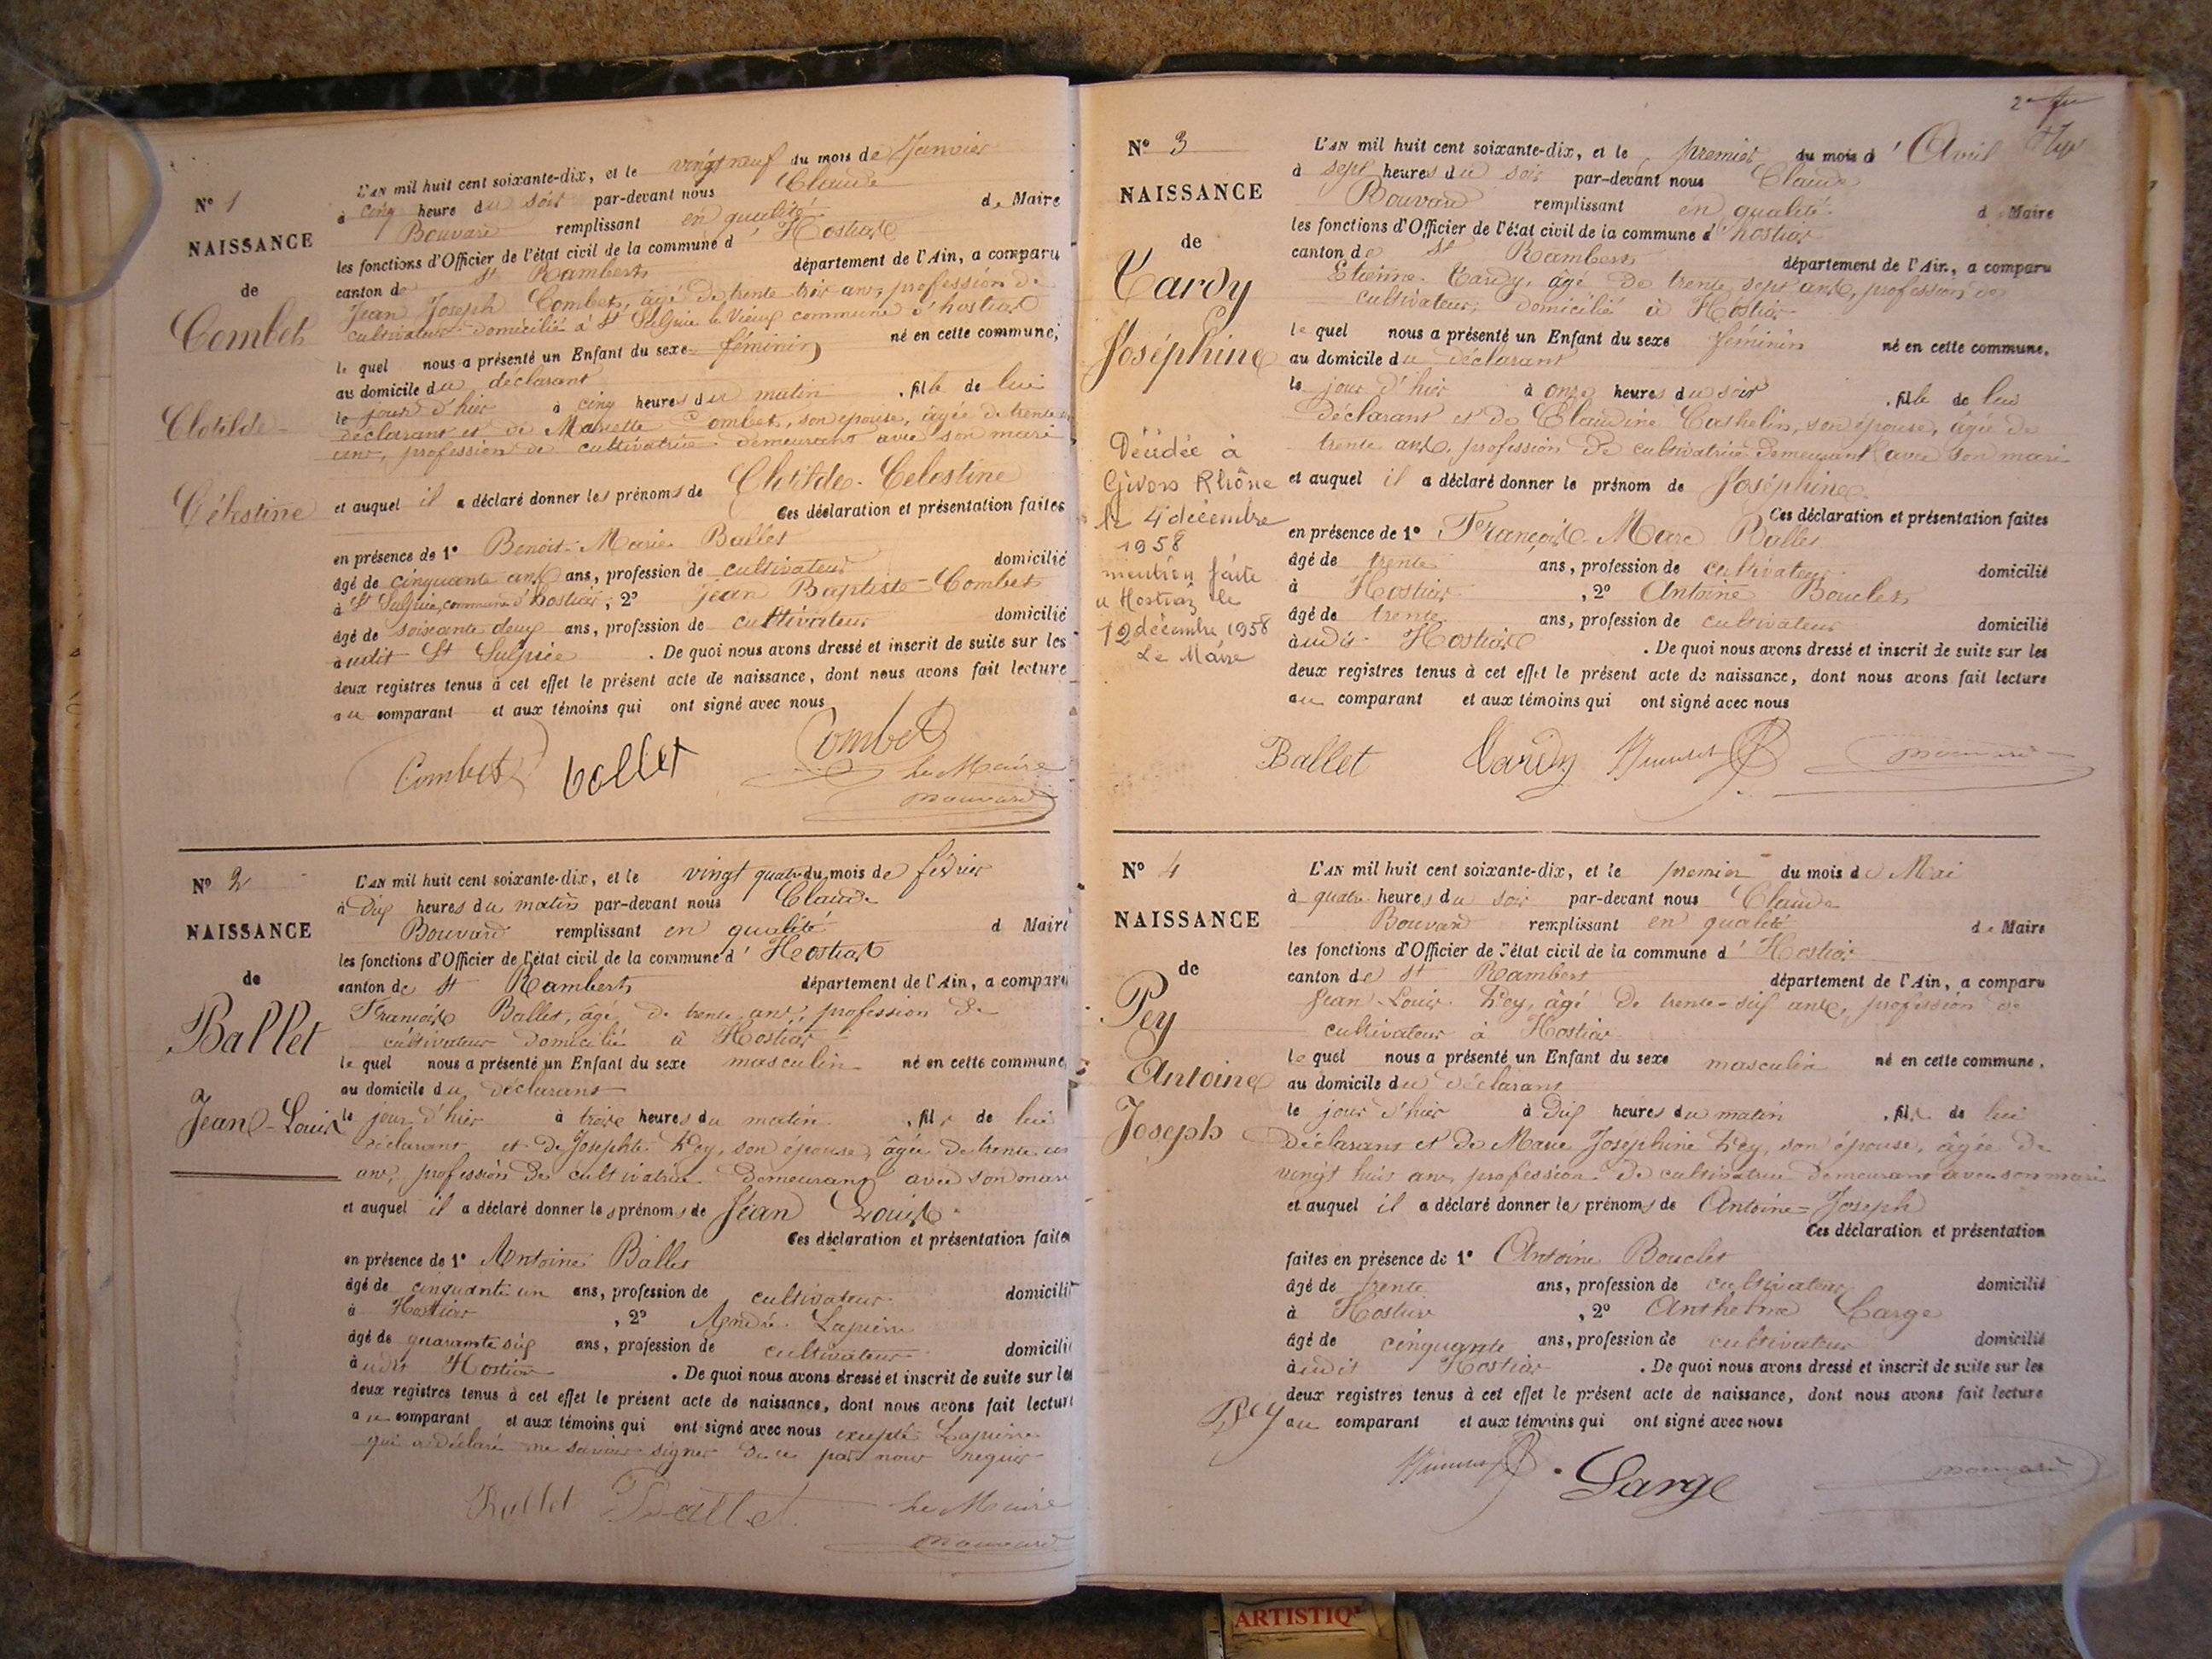 N° 1
NAISSANCE
de
Combet
Clotilde
Célestine
L'AN mil huit cent soixante-dix, et le vingt neuf du mois de Janvier
à cinq heure du soir par-devant nous Claude
Bouvard remplissant en qualité de Maire
les fonctions d'Officier de l'état civil de la commune d'Hostiaz
canton de St Rambert département de l'Ain, a comparu
Jean Joseph Combet, âgé de trente trois ans, profession de
cultivateur domicilié à St Sulpice le Vieux commune d'hostiaz
le quel nous a présenté un Enfant du sexe féminin né en cette commune,
au domicile du déclarant
le jour d'hier à cinq heures du matin, fille de lui
déclarant et de Mariette Combet, son épouse, âgée de trente
ans, profession de cultivatrice demeurant avec son mari
et auquel il a déclaré donner les prénoms de Clotilde-Célestine
Ces déclaration et présentation faites
en présence de 1° Benoit-Marie Ballet
âgé de cinquante ans ans, profession de cultivateur domicilié
à St Sulpice, commune d'hostiaz, 2° jean Baptiste-Combet
âgé de soixante deux ans, profession de cultivateur domicilié
àudit St Sulpice. De quoi nous avons dressé et inscrit de suite sur les
deux registres tenus à cet effet le présent acte de naissance, dont nous avons fait lecture
au comparant et aux témoins qui ont signé avec nous
Combet ballet Combet
Le Maire
Bouvard
N° 2
NAISSANCE
de
Ballet
Jean-Louis
L'AN mil huit cent soixante-dix, et le vingt quatre du mois de février
à dix heures du matin par-devant nous Claude
Bouvard remplissant en qualité d Maire
les fonctions d'Officier de l'état civil de la commune d'Hostiaz
canton de St Rambert département de l'Ain, a comparu
François Ballet, âgé de trente ans, profession de
cultivateur domicilié à Hostiaz
le quel nous a présenté un Enfant du sexe masculin né en cette commune
au domicile du déclarant
le jour d'hier à trois heures du matin, fils de lui
déclarant et de Josephte Pey, son épouse, âgée de trente un
ans, profession de cultivatrice demeurant avec son mari
et auquel il a déclaré donner les prénoms de Jean Louis
Ces déclaration et présentation faites
en présence de 1° Antoine Ballet
âgé de cinquante un ans, profession de cultivateur domicilié
à Hostiaz, 2° André Lapierre
âgé de quarante six ans, profession de cultivateur domicilié
àudit Hostiaz. De quoi nous avons dressé et inscrit de suite sur les
deux registres tenus à cet effet le présent acte de naissance, dont nous avons fait lecture
au comparant et aux témoins qui ont signé avec nous excepté Lapierre
qui a déclaré ne savoir signer de ce par nous requis
Ballet Ballet Le Maire
Bouvard
N° 3
NAISSANCE
de
Tardy
Joséphine
Décédée à
Givors Rhône
le 4 décembre
1958
mention faite
a Hostiaz le
12 décembre 1958
Le Maire
L'AN mil huit cent soixante-dix, et le premier du mois d'Avril
à sept heures du soir par-devant nous Claude
Bouvard remplissant en qualité d Maire
les fonctions d'Officier de l'état civil de la commune d'hostiaz
canton de St Rambert département de l'Ain, a comparu
Etienne Tardy, âgé de trente sept ans, profession de
cultivateur, domicilié à Hostiaz
le quel nous a présenté un Enfant du sexe féminin né en cette commune.
au domicile du déclarant
le jour d'hier à onze heures du soir, fille de lui
déclarant et de Claudine Cathelin, son épouse, âgée de
trente ans, profession de cultivatrice demeurant avec son mari
et auquel il a déclaré donner le prénom de Joséphine
Ces déclaration et présentation faites
en présence de 1° François-Marc Ballet
âgé de trente ans, profession de cultivateur domicilié
à Hostiaz, 2° Antoine Bouclet
âgé de trente ans, profession de cultivateur domicilié
àudit Hostiaz. De quoi nous avons dressé et inscrit de suite sur les
deux registres tenus à cet effet le présent acte de naissance, dont nous avons fait lecture
au comparant et aux témoins qui ont signé avec nous
Ballet Tardy Bouvard
N° 4
NAISSANCE
de
Pey
Antoine
Joseph
L'AN mil huit cent soixante-dix, et le premier du mois de Mai
à quatre heures du soir par-devant nous Claude
Bouvard remplissant en qualité de Maire
les fonctions d'Officier de l'état civil de la commune d'Hostiaz
canton de St Rambert département de l'Ain, a comparu
Jean-Louis Pey, âgé de trente-six ans, profession de
cultivateur à Hostiaz
le quel nous a présenté un Enfant du sexe masculin né en cette commune,
au domicile du déclarant
le jour d'hier à dix heures du matin, fils de lui
déclarant et de Marie Josephine Pey, son épouse, âgée de
vingt huit ans, profession de cultivatrice demeurant avec son mari
et auquel il a déclaré donner les prénoms de Antoine-Joseph
Ces déclaration et présentation
faites en présence de 1° Antoine Bouclet
âgé de trente ans, profession de cultivateur domicilié
à Hostiaz, 2° Anthelme Large
âgé de cinquante ans, profession de cultivateur domicilié
àudit Hostiaz. De quoi nous avons dressé et inscrit de suite sur les
deux registres tenus à cet effet le présent acte de naissance, dont nous avons fait lecture
au comparant et aux témoins qui ont signé avec nous
Pey Large Bouvard
ARTISTIQ